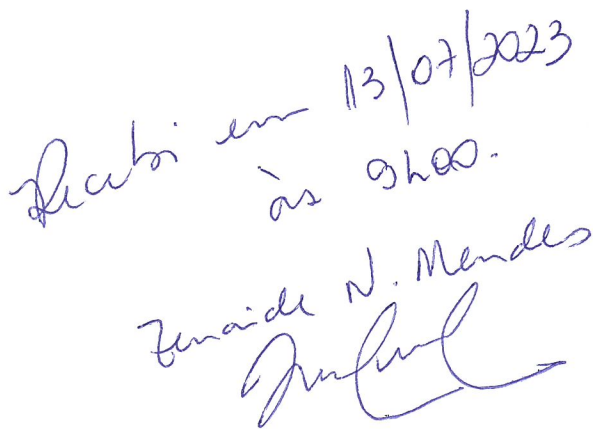 Recebi em 13/07/2023
às 9h00.
Zenaide N. Mendes